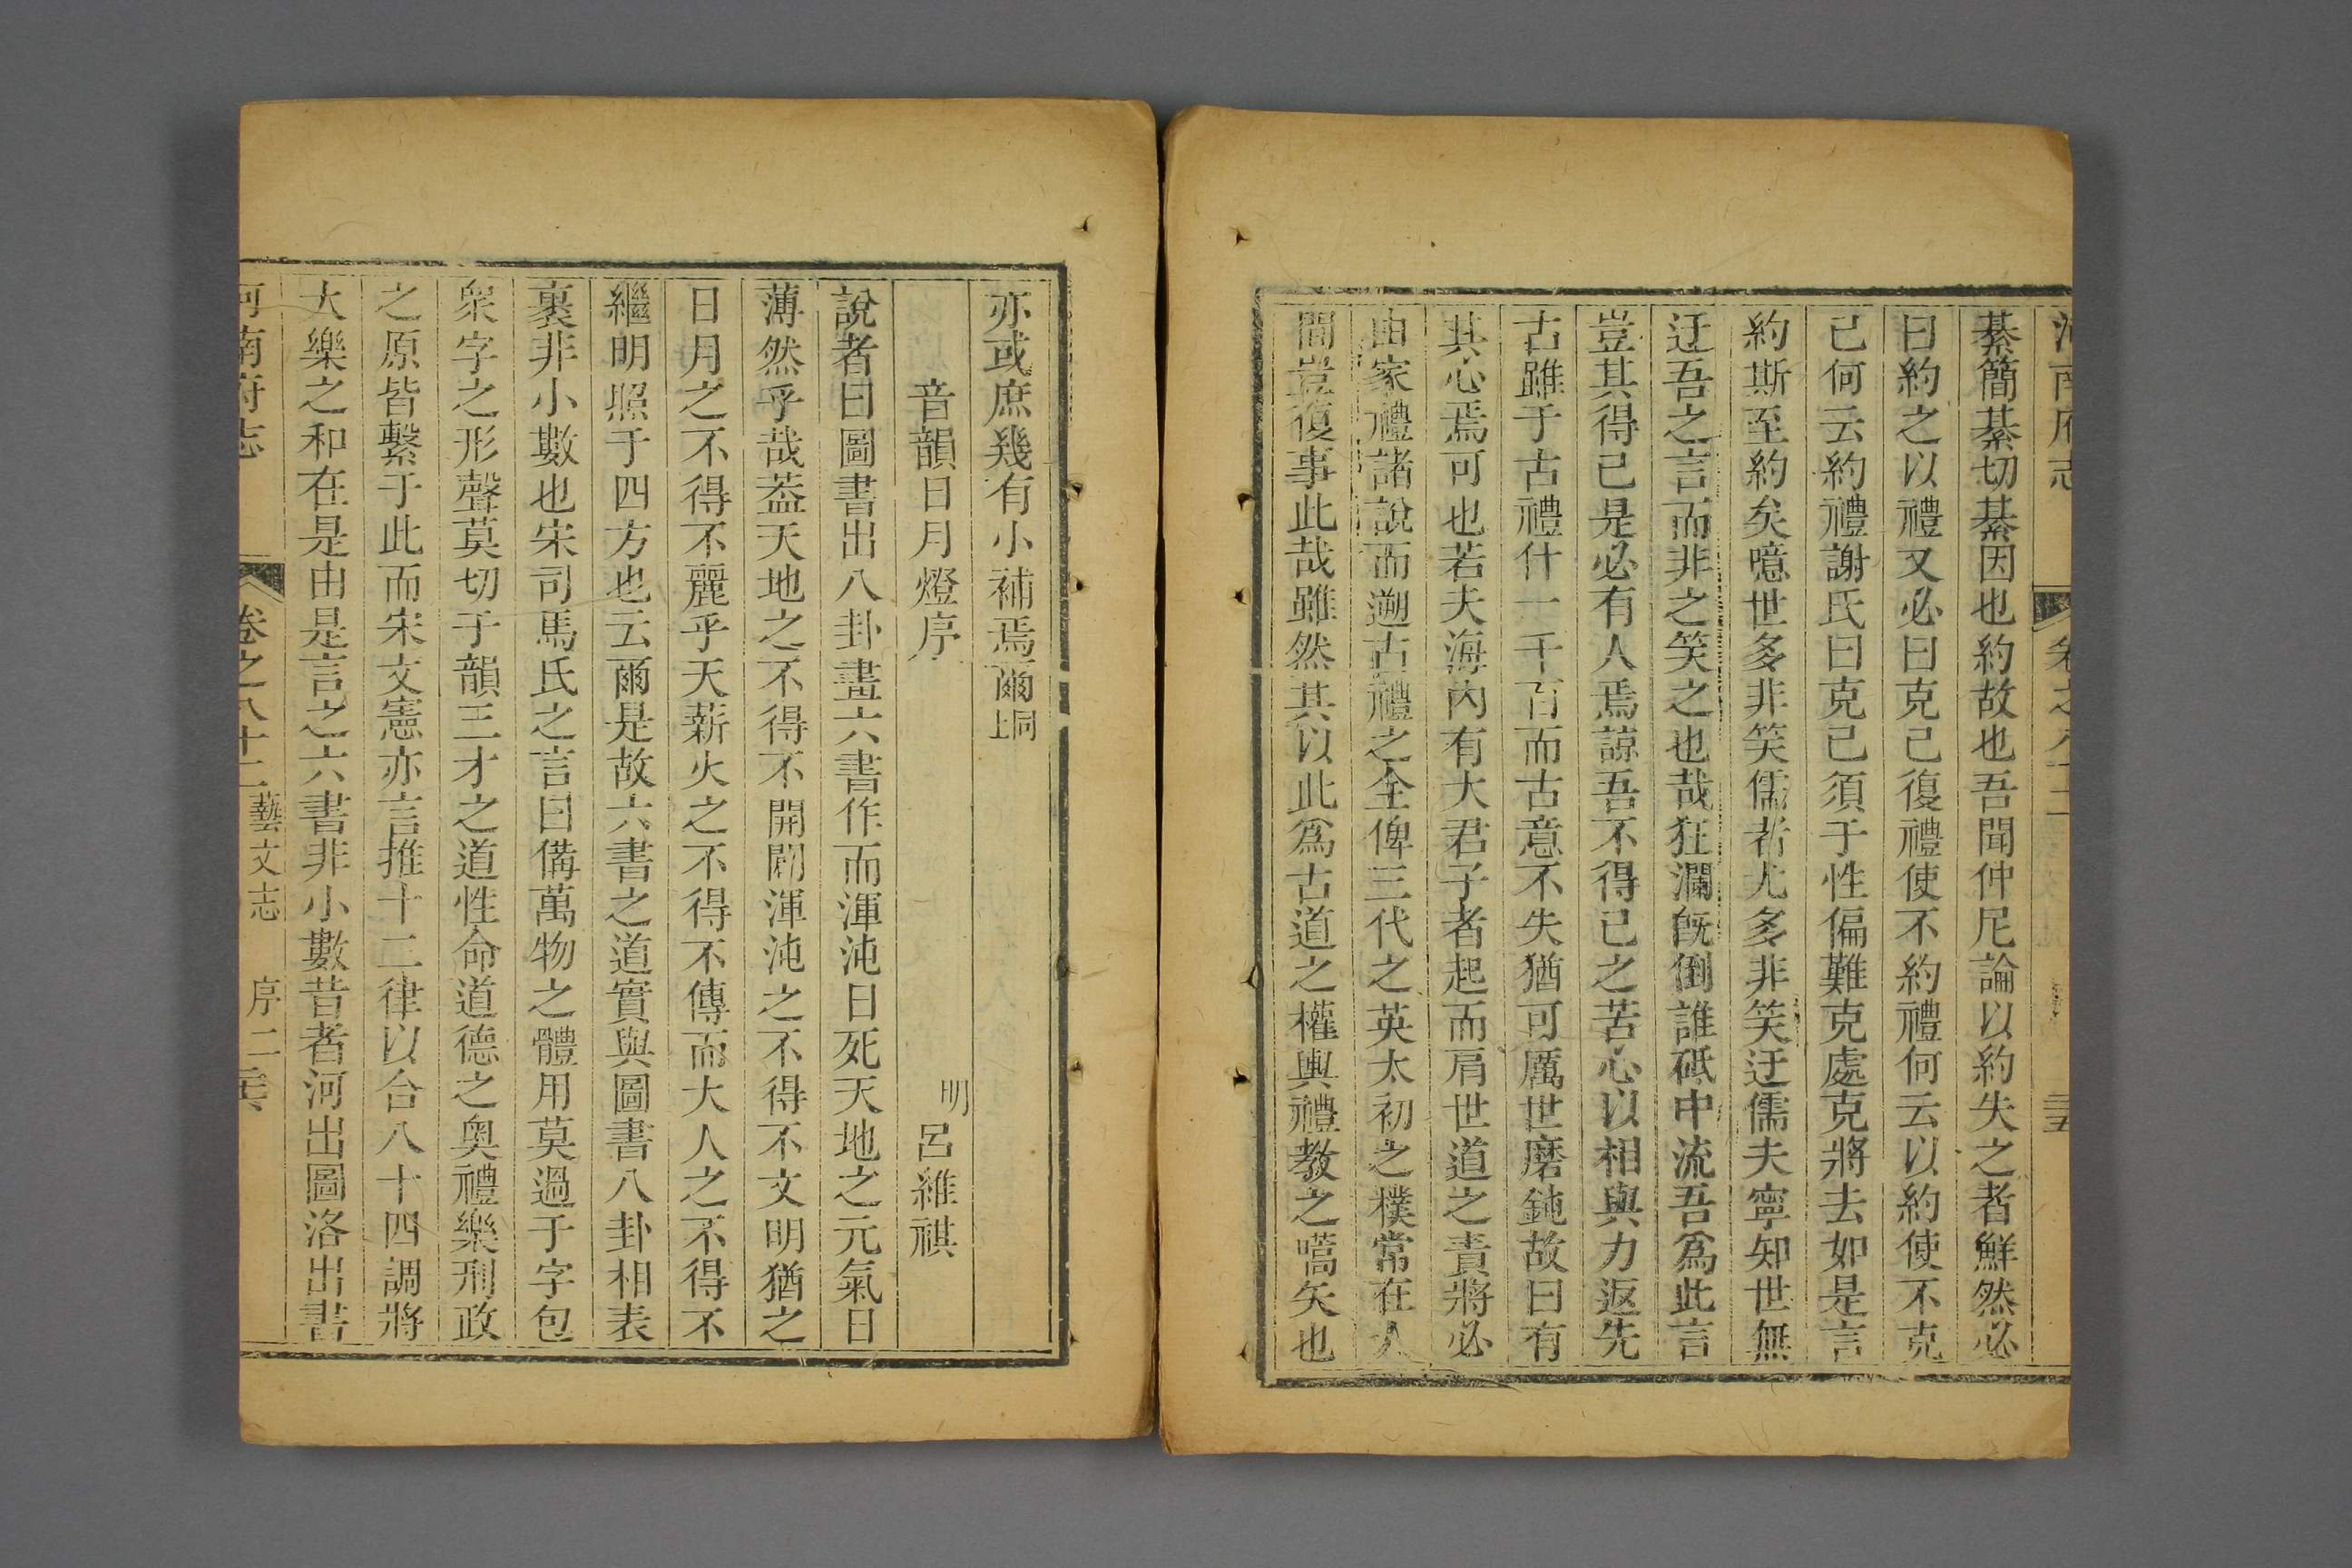 河南府志 卷之八十二 三五
綦簡綦切綦因也約故也吾聞仲尼論以約失之者鮮然必
曰約之以禮又必曰克己復禮使不約禮何云以約使不克
己何云約禮謝氏曰克己須于性偏難克處克將去如是言
約斯至約矣噫世多非笑儒者尤多非笑迂儒夫寧知世無
迂吾之言而非之笑之也哉狂瀾旣倒誰砥中流吾爲此言
豈其得已是必有人焉諒吾不得已之苦心以相與力返先
古雖于古禮什一千百而古意不失猶可厲世磨鈍故曰有
其心焉可也若夫海內有大君子者起而肩世道之責將必
由家禮諸說而遡古禮之全俾三代之英太初之樸常在人
間豈復事此哉雖然其以此爲古道之權輿禮教之嚆矢也
亦或庶幾有小補焉爾同上
音韻日月燈序 明呂維祺
說者曰圖書出八卦畫六書作而渾沌日死天地之元氣日
薄然乎哉葢天地之不得不開闢渾沌之不得不文明猶之
日月之不得不麗乎天薪火之不得不傳而大人之不得不
繼明照于四方也云爾是故六書之道實與圖書八卦相表
裏非小數也宋司馬氏之言曰備萬物之體用莫過于字包
衆字之形聲莫切于韻三才之道性命道德之奧禮樂刑政
之原皆繫于此而宋文憲亦言推十二律以合八十四調將
大樂之和在是由是言之六書非小數昔者河出圖洛出書
河南府志 卷之八十二 藝文志 序二 三六